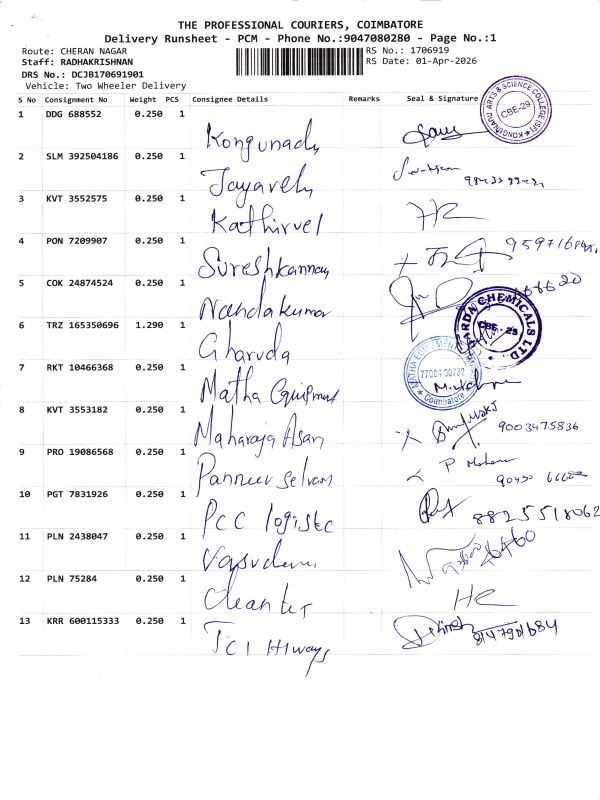 THE PROFESSIONAL COURIERS, COIMBATORE
Delivery Runsheet - PCM - Phone No.:9047080280 - Page No.:1
Route: CHERAN NAGAR
RS No.: 1706919
Staff: RADHAKRISHNAN
RS Date: 01-Apr-2026
DRS No.: DCJB170691901
Vehicle: Two Wheeler Delivery
S No Consignment No Weight PCS Consignee Details Remarks Seal & Signature
KONGUNADU ARTS & SCIENCE COLLEGE
CBE-29
1 DDG 688552 0.250 1 Kongunadu
2 SLM 392504186 0.250 1 Jayavelu
3 KVT 3552575 0.250 1 Kathirvel
4 PON 7209907 0.250 1 Sureshkannan
5 COK 24874524 0.250 1 Nandakumar
6 TRZ 165350696 1.290 1 Gharuda
GARDA CHEMICALS LTD.
CBE-23
7 RKT 10466368 0.250 1 Matha Equipment
Coimbatore
8 KVT 3553182 0.250 1 Maharaja Asan
9003475836
9 PRO 19086568 0.250 1 Panneer Selvam
P Mohana
10 PGT 7831926 0.250 1 PCC logistc
8825518062
11 PLN 2438047 0.250 1 Vasudevan
12 PLN 75284 0.250 1 Cleanter
13 KRR 600115333 0.250 1 TCI Hiways
8147901684